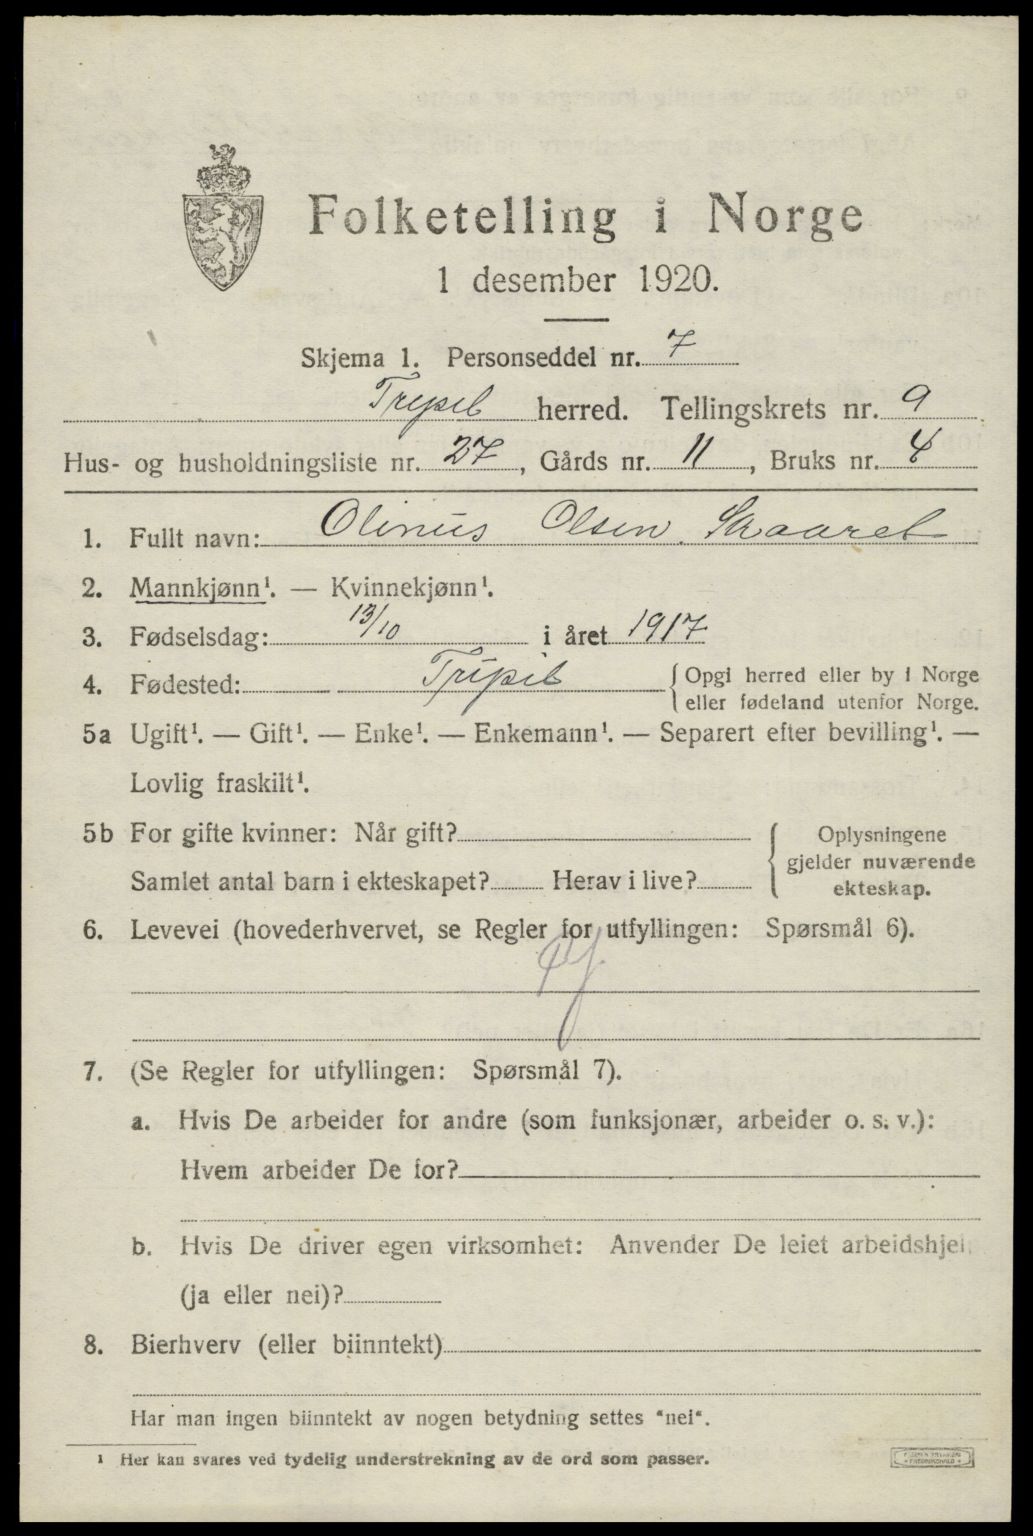 Folketelling i Norge
1 desember 1920.
Skjema 1. Personseddel nr. 7
Trysil herred. Tellingskrets nr. 9
Hus- og husholdningsliste nr. 27, Gårds nr. 11, Bruks nr. 4
1. Fullt navn: Olinus Olsen Skaaret
2. Mannkjønn¹. — Kvinnekjønn¹.
3. Fødselsdag: 13/10 i året 1917
4. Fødested: Trysil { Opgi herred eller by i Norge
eller fødeland utenfor Norge.
5a Ugift¹. — Gift¹. — Enke¹. — Enkemann¹. — Separert efter bevilling¹. —
Lovlig fraskilt¹.
5b For gifte kvinner: Når gift?
Samlet antal barn i ekteskapet? Herav i live?
Oplysningene
gjelder nuværende
ekteskap.
6. Levevei (hovederhvervet, se Regler for utfyllingen: Spørsmål 6).
7. (Se Regler for utfyllingen: Spørsmål 7).
a. Hvis De arbeider for andre (som funksjonær, arbeider o. s. v.):
Hvem arbeider De for?
b. Hvis De driver egen virksomhet: Anvender De leiet arbeidshjel
(ja eller nei)?
8. Bierhverv (eller biinntekt)
Har man ingen biinntekt av nogen betydning settes "nei".
¹ Her kan svares ved tydelig understrekning av de ord som passer.